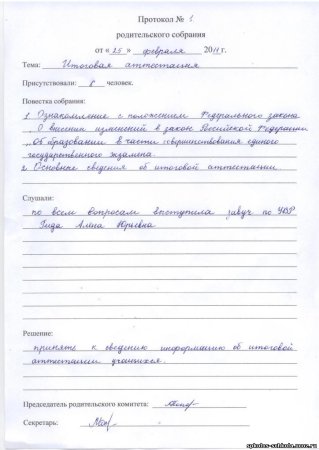 Протокол № 1
родительского собрания
от « 25 » февраля 2011 г.
Тема: Итоговая аттестация
Присутствовали: 8 человек.
Повестка собрания:
1. Ознакомление с положением Федерального закона
„О внесении изменений в законе Российской Федерации
„Об образовании в части совершенствования единого
государственного экзамена.
2. Основные сведения об итоговой аттестации.
Слушали:
по всем вопросам выступила завуч по УВР
Гида Алёна Юрьевна
Решение:
принять к сведению информацию об итоговой
аттестации учащихся.
Председатель родительского комитета:
Секретарь:
spkolos-schkola.ucoz.ru